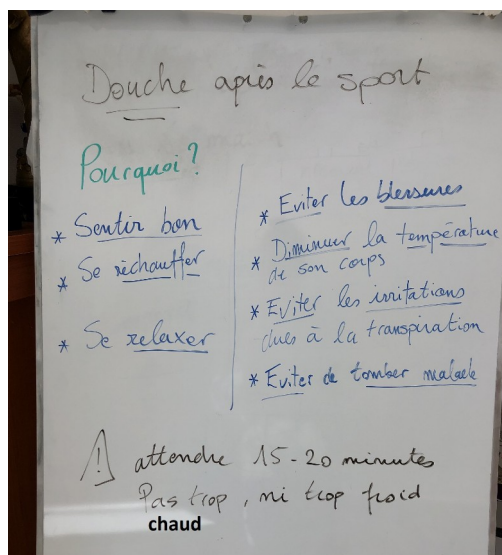 Douche après le sport
Pourquoi?
* Sentir bon
* Se réchauffer
* Se relaxer
* Eviter les blessures
* Diminuer la température
de son corps
* Eviter les irritations
dues à la transpiration
* Eviter de tomber malade
! attendre 15-20 minutes
Pas trop , ni trop froid
chaud